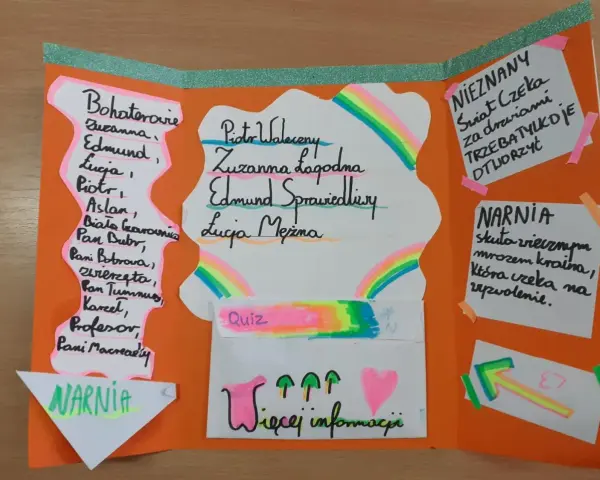 Bohaterowie
Zuzanna,
Edmund,
Łucja,
Piotr,
Aslan,
Biała Czarownica
Pan Bóbr,
Pani Bobrowa,
zwierzęta,
Pan Tumnus,
Karzeł,
Profesor,
Pani Macready
NARNIA
Piotr Waleczny
Zuzanna Łagodna
Edmund Sprawiedliwy
Łucja Mężna
Quiz
Więcej informacji
NIEZNANY
Świat Czeka
za drzwiami
TRZEBA TYLKO JE
OTWORZYĆ
NARNIA
skuta wiecznym
mrozem kraina,
która czeka na
wyzwolenie.